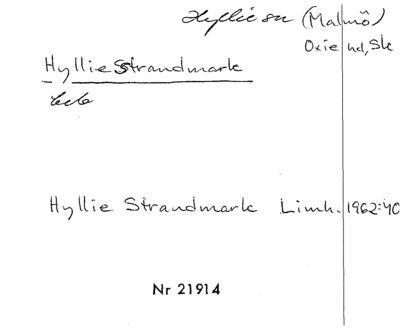 Hyllie sn (Malmö)
Oxie hd, Sk
Hyllie Strandmark
beb
Hyllie Strandmark Limh. 1962:40
Nr 21914